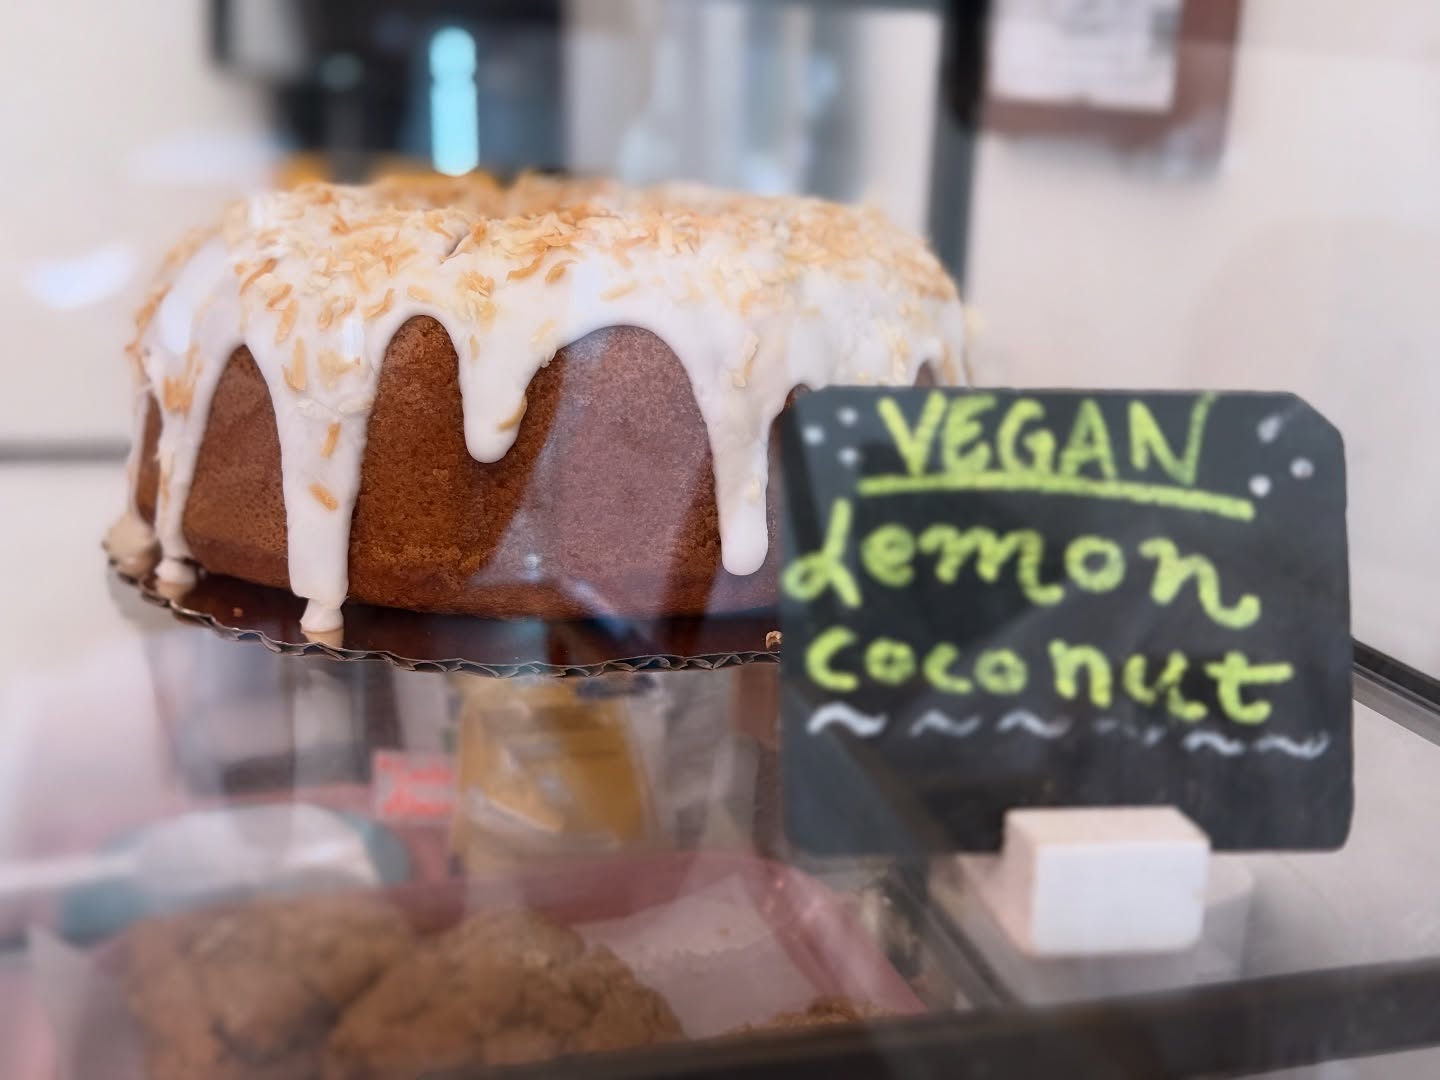 VEGAN
Lemon
coconut